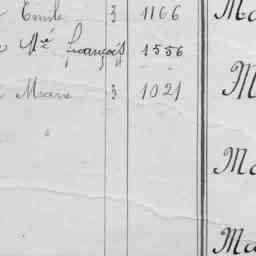 Emile 3 1166 Ma
Mié François 1556
M
3 1021
Ma
Ma